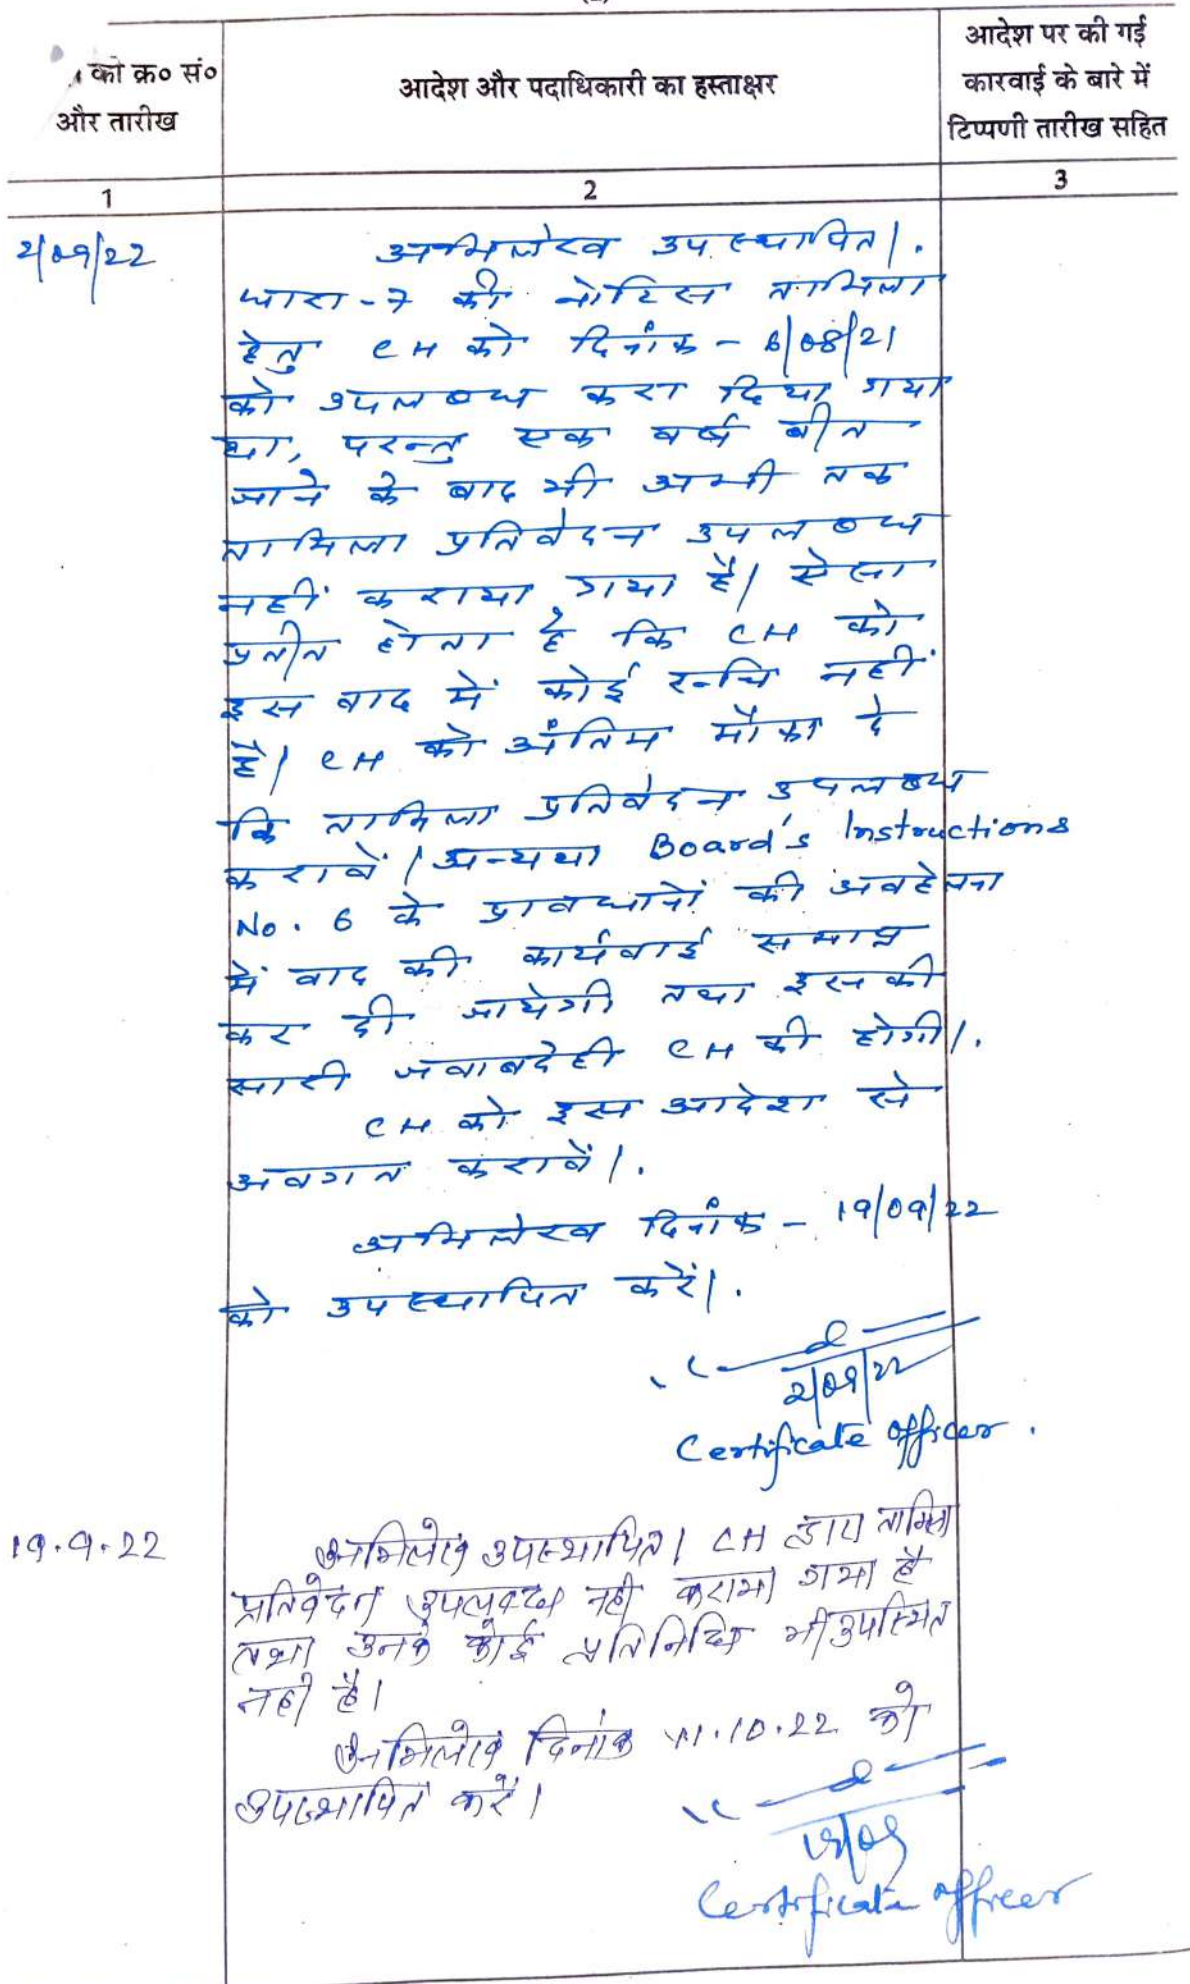 को क्र० सं०
और तारीख
आदेश और पदाधिकारी का हस्ताक्षर
आदेश पर की गई
कारवाई के बारे में
टिप्पणी तारीख सहित
1
2
3
2/09/22
अभिलेख उपस्थापित।.
धारा-7 की नोटिस तामिला
हेतु CH को दिनांक - 6/08/21
को उपलब्ध करा दिया गया
था, परन्तु एक वर्ष बीत
जाने के बाद भी अभी तक
तामिला प्रतिवेदन उपलब्ध
नहीं कराया गया है। ऐसा
प्रतीत होता है कि CH को
इस वाद में कोई रूचि नहीं
है। CH को अंतिम मौका दे
कि तामिला प्रतिवेदन उपलब्ध
करावें। अन्यथा Board's Instructions
No. 6 के प्रावधानों की अवहेलना
में वाद की कार्यवाई समाप्त
कर दी जायेगी तथा इसकी
सारी जवाबदेही CH की होगी।.
CH को इस आदेश से
अवगत करावें।.
अभिलेख दिनांक - 19/09/22
को उपस्थापित करें।.
2/09/22
Certificate officer.
19.9.22
अभिलेख उपस्थापित। CH द्वारा तामिला
प्रतिवेदन उपलब्ध नहीं कराया गया है
तथा उनके कोई प्रतिनिधि भी उपस्थित
नहीं है।
अभिलेख दिनांक 11.10.22 को
उपस्थापित करें।
Certificate officer